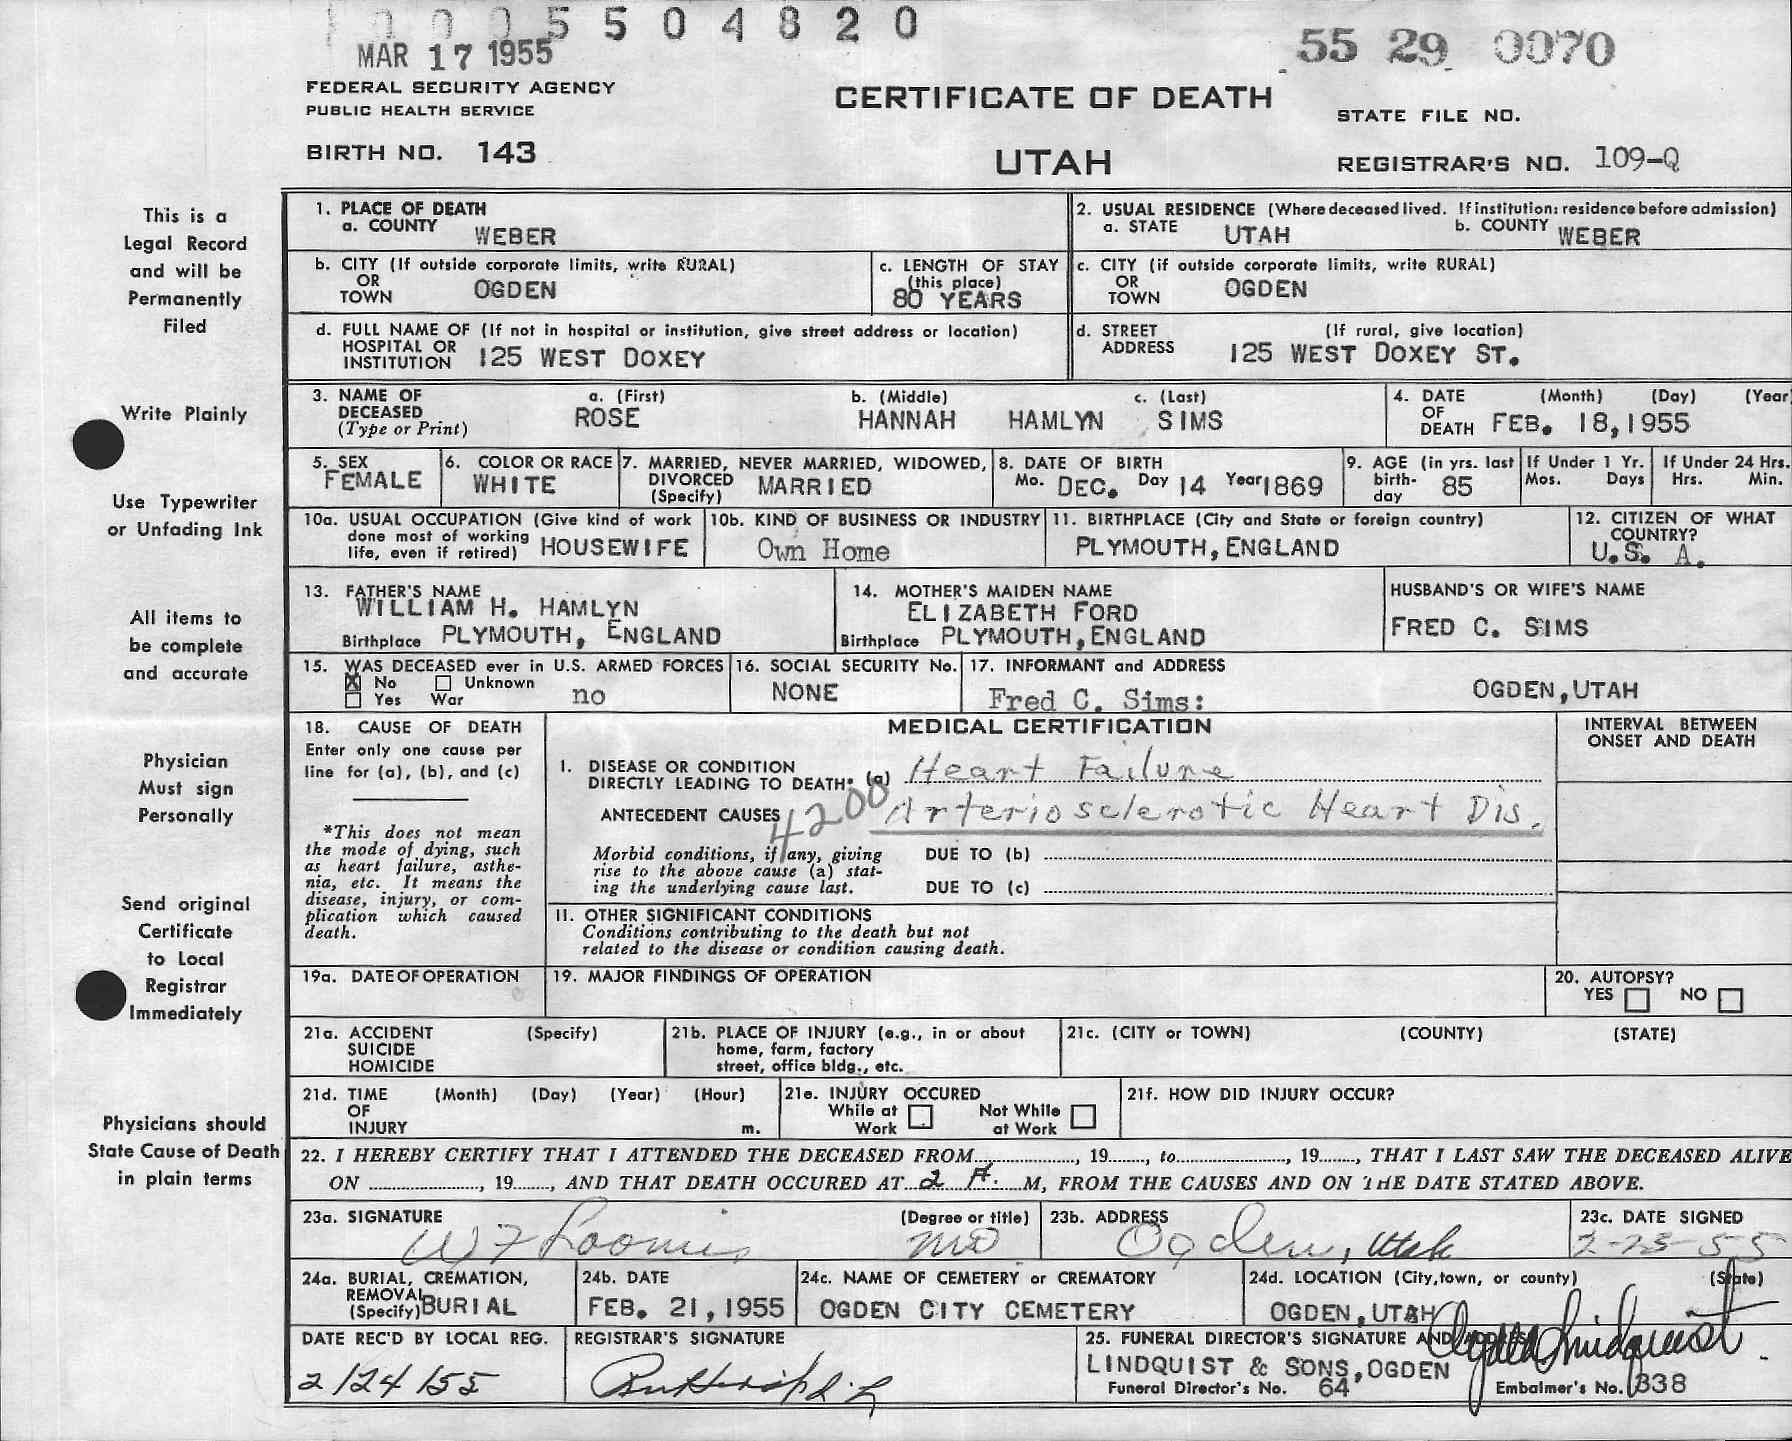 0 0 5 5 0 4 8 2 0
MAR 17 1955
55 29 0070
FEDERAL SECURITY AGENCY
PUBLIC HEALTH SERVICE
CERTIFICATE OF DEATH
STATE FILE NO.
BIRTH NO. 143
UTAH
REGISTRAR'S NO. 109-Q
This is a
Legal Record
and will be
Permanently
Filed
Write Plainly
Use Typewriter
or Unfading Ink
All items to
be complete
and accurate
Physician
Must sign
Personally
Send original
Certificate
to Local
Registrar
Immediately
Physicians should
State Cause of Death
in plain terms
1. PLACE OF DEATH
a. COUNTY WEBER
2. USUAL RESIDENCE (Where deceased lived. If institution: residence before admission)
a. STATE UTAH b. COUNTY WEBER
b. CITY (If outside corporate limits, write RURAL)
OR
TOWN OGDEN
c. LENGTH OF STAY
(this place)
80 YEARS
c. CITY (if outside corporate limits, write RURAL)
OR
TOWN OGDEN
d. FULL NAME OF (If not in hospital or institution, give street address or location)
HOSPITAL OR
INSTITUTION 125 WEST DOXEY
d. STREET (If rural, give location)
ADDRESS 125 WEST DOXEY ST.
3. NAME OF DECEASED
(Type or Print)
a. (First) b. (Middle) c. (Last)
ROSE HANNAH HAMLYN SIMS
4. DATE OF DEATH (Month) (Day) (Year
FEB. 18, 1955
5. SEX
FEMALE
6. COLOR OR RACE
WHITE
7. MARRIED, NEVER MARRIED, WIDOWED,
DIVORCED
(Specify) MARRIED
8. DATE OF BIRTH
Mo. DEC. Day 14 Year 1869
9. AGE (in yrs. last
birth-
day 85
If Under 1 Yr.
Mos. Days
If Under 24 Hrs.
Hrs. Min.
10a. USUAL OCCUPATION (Give kind of work
done most of working
life, even if retired) HOUSEWIFE
10b. KIND OF BUSINESS OR INDUSTRY
Own Home
11. BIRTHPLACE (City and State or foreign country)
PLYMOUTH, ENGLAND
12. CITIZEN OF WHAT
COUNTRY?
U.S. A.
13. FATHER'S NAME
WILLIAM H. HAMLYN
Birthplace PLYMOUTH, ENGLAND
14. MOTHER'S MAIDEN NAME
ELIZABETH FORD
Birthplace PLYMOUTH, ENGLAND
HUSBAND'S OR WIFE'S NAME
FRED C. SIMS
15. WAS DECEASED ever in U.S. ARMED FORCES
X No Unknown
Yes War no
16. SOCIAL SECURITY No.
NONE
17. INFORMANT and ADDRESS
Fred C. Sims: OGDEN, UTAH
18. CAUSE OF DEATH
Enter only one cause per
line for (a), (b), and (c)
*This does not mean
the mode of dying, such
as heart failure, asthe-
nia, etc. It means the
disease, injury, or com-
plication which caused
death.
MEDICAL CERTIFICATION
INTERVAL BETWEEN
ONSET AND DEATH
I. DISEASE OR CONDITION
DIRECTLY LEADING TO DEATH* (a) Heart Failure
4200
ANTECEDENT CAUSES Arteriosclerotic Heart Dis.
Morbid conditions, if any, giving
rise to the above cause (a) stat-
ing the underlying cause last.
DUE TO (b)
DUE TO (c)
II. OTHER SIGNIFICANT CONDITIONS
Conditions contributing to the death but not
related to the disease or condition causing death.
19a. DATE OF OPERATION
19. MAJOR FINDINGS OF OPERATION
20. AUTOPSY?
YES NO
21a. ACCIDENT (Specify)
SUICIDE
HOMICIDE
21b. PLACE OF INJURY (e.g., in or about
home, farm, factory
street, office bldg., etc.
21c. (CITY or TOWN) (COUNTY) (STATE)
21d. TIME (Month) (Day) (Year) (Hour)
OF
INJURY m.
21e. INJURY OCCURED
While at Work
Not While at Work
21f. HOW DID INJURY OCCUR?
22. I HEREBY CERTIFY THAT I ATTENDED THE DECEASED FROM, 19, to, 19, THAT I LAST SAW THE DECEASED ALIVE
ON, 19, AND THAT DEATH OCCURED AT 2 A. M, FROM THE CAUSES AND ON THE DATE STATED ABOVE.
23a. SIGNATURE (Degree or title)
W F Loomis MD
23b. ADDRESS
Ogden, Utah
23c. DATE SIGNED
2-23-55
24a. BURIAL, CREMATION,
REMOVAL
(Specify) BURIAL
24b. DATE
FEB. 21, 1955
24c. NAME OF CEMETERY or CREMATORY
OGDEN CITY CEMETERY
24d. LOCATION (City, town, or county) (State)
OGDEN, UTAH
DATE REC'D BY LOCAL REG.
2/24/55
REGISTRAR'S SIGNATURE
25. FUNERAL DIRECTOR'S SIGNATURE AND ADDRESS
LINDQUIST & SONS, OGDEN
Lindquist
Funeral Director's No. 64
Embalmer's No. 338